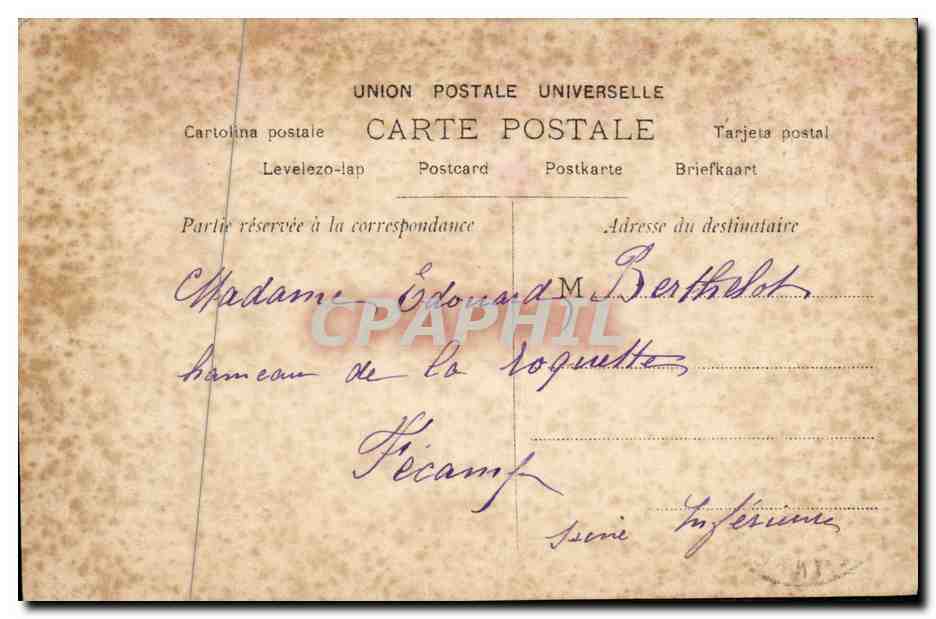 UNION POSTALE UNIVERSELLE
Cartolina postale CARTE POSTALE Tarjeta postal
Levelezo-lap Postcard Postkarte Briefkaart
Partie réservée à la correspondance Adresse du destinataire
Madame Édouard M Berthelot
hameau de la roquette
CPAPHIL
Fécamp
Seine Inférieure